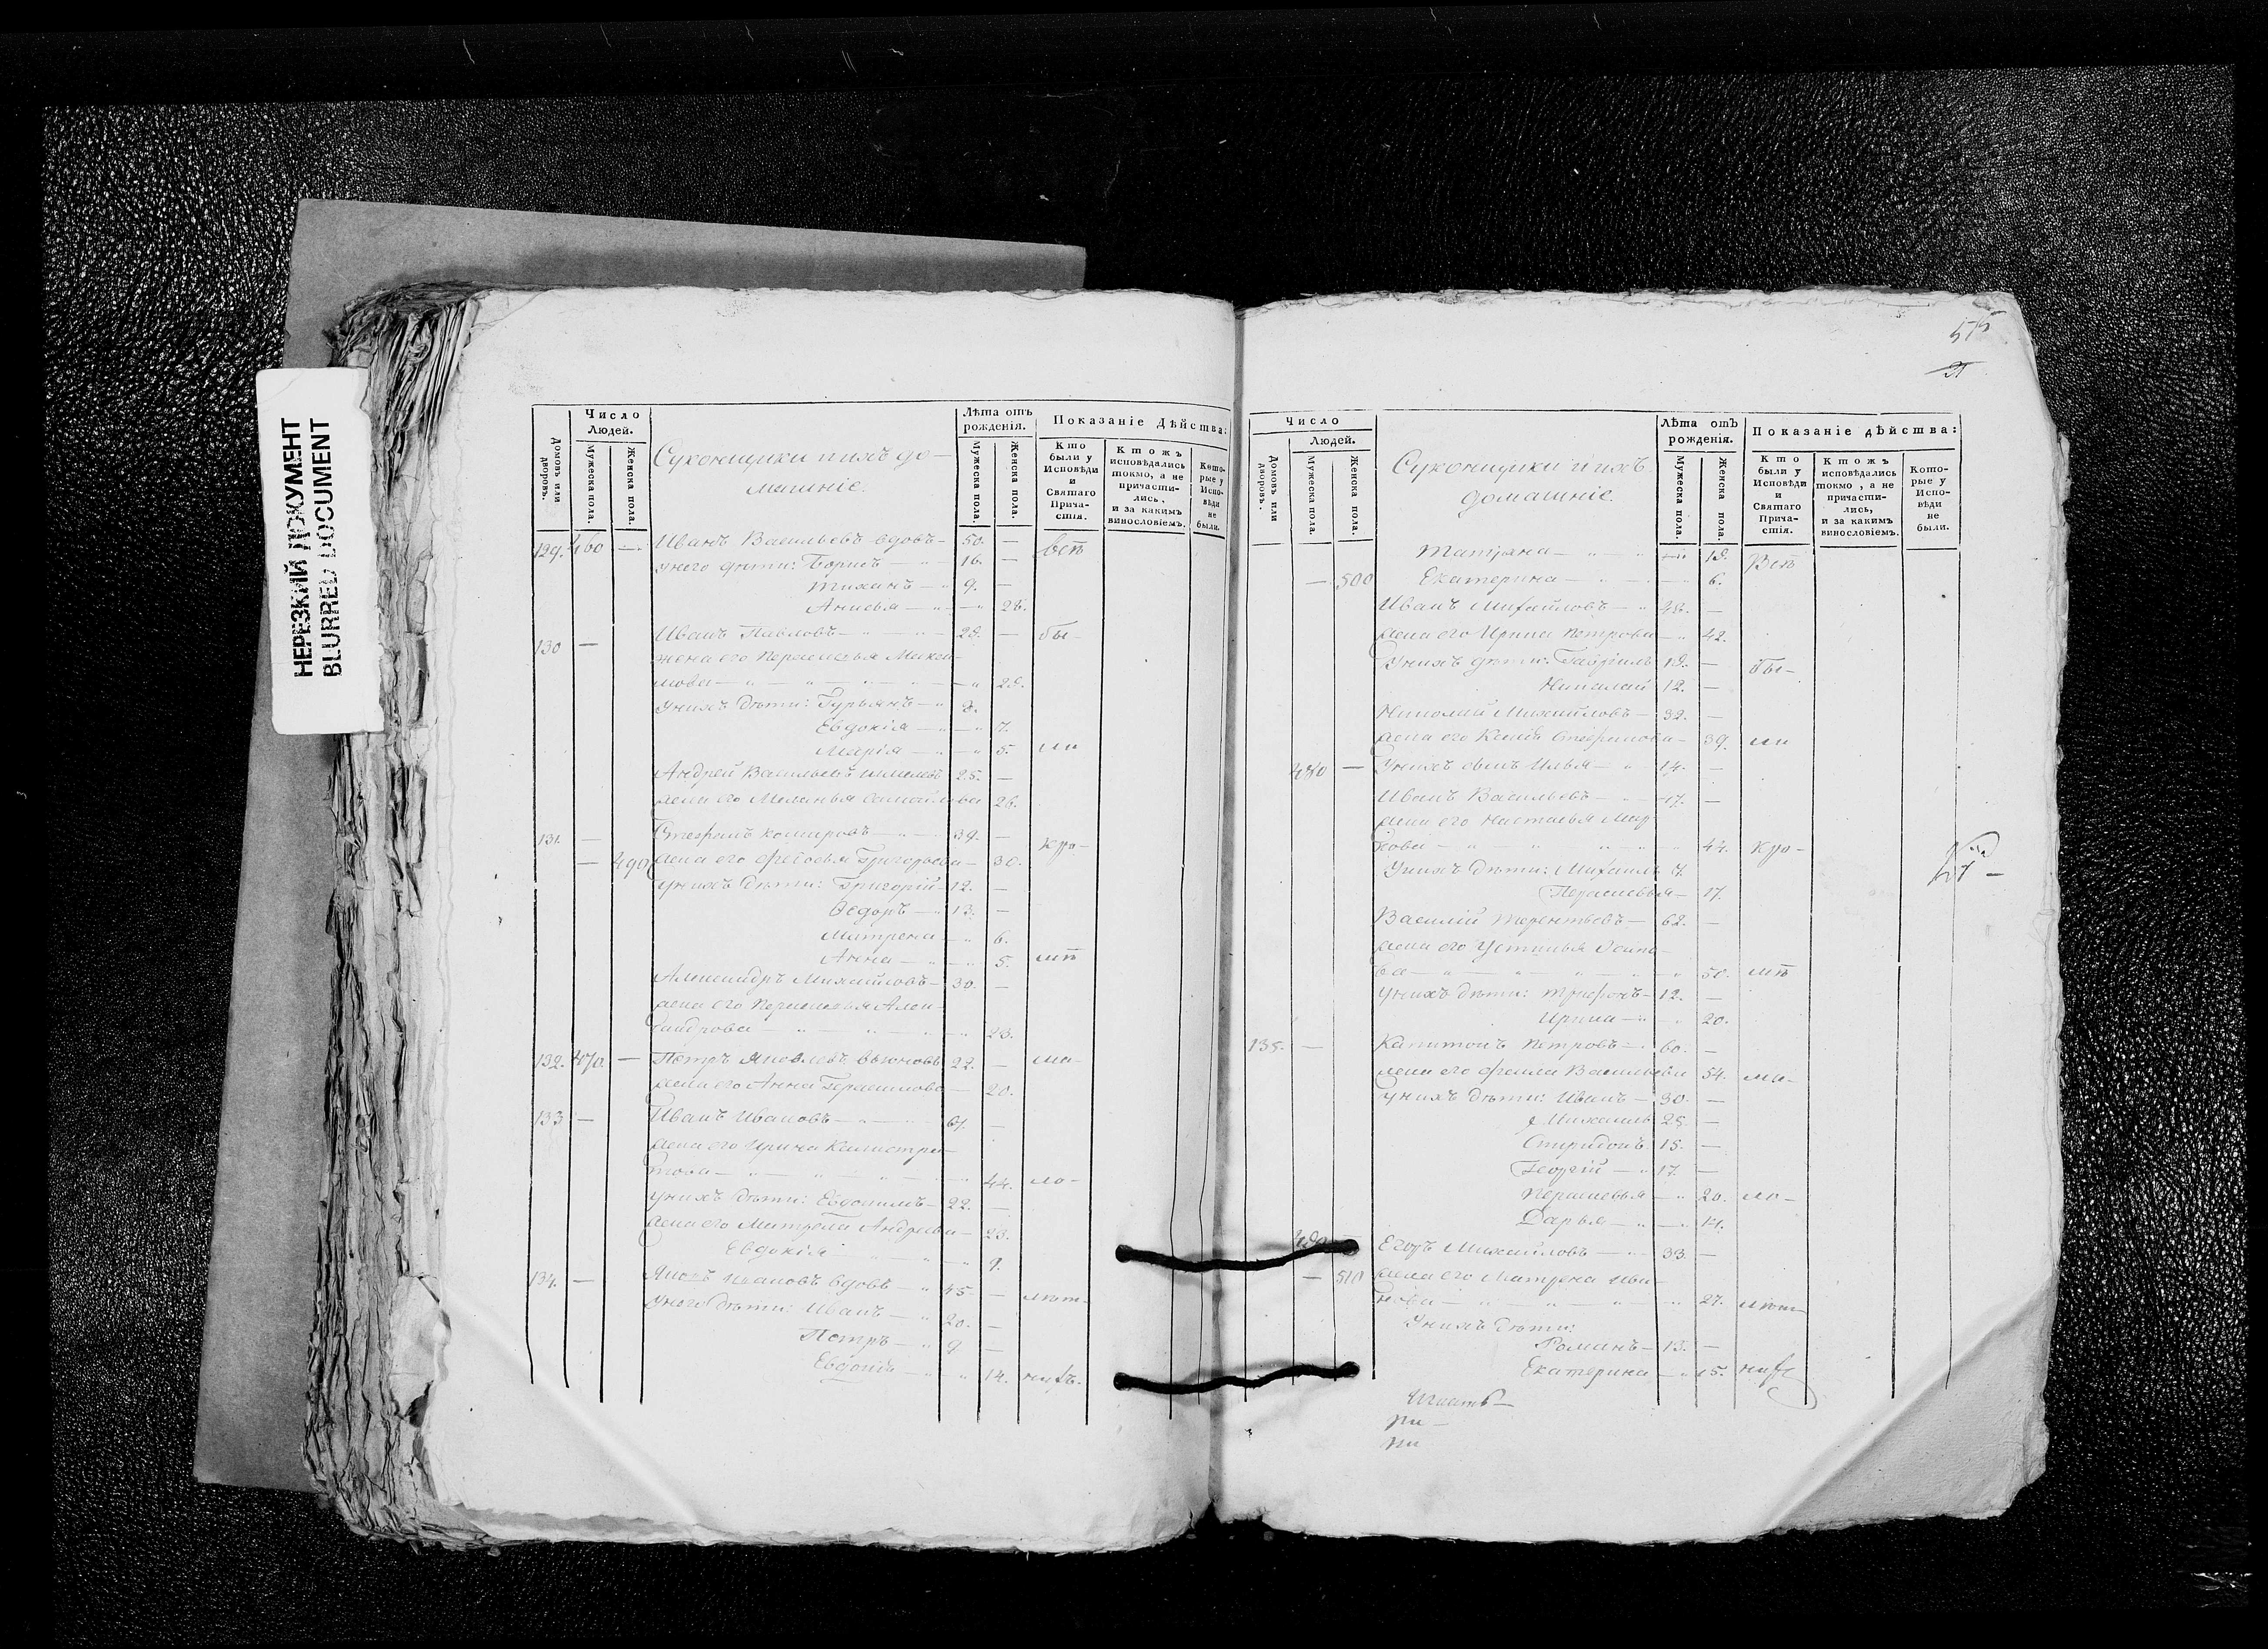 НЕРЕЗКИЙ ДОКУМЕНТ
BLURRED DOCUMENT
Домовъ или дворовъ.
Число Людей.
Мужеска пола.
Женска пола.
Сукощики и ихъ до-
машніе.
Лѣта отъ рожденія.
Мужеска пола.
Женска пола.
Показаніе Дѣйства:
Кто были у Исповѣди и Святаго Прича- стія.
Ктожъ исповѣдались токмо, а не причасти- лись, и за какимъ винословіемъ.
Кото- рые у Испо- вѣди не были.
129. 460 — Иванъ Васильевъ вдовъ — 50. —
у него дѣти: Борисъ — 16. —
Тиханъ — 9. —
Анисья — 26.
130 — Иванъ Павловъ — 29. — бы-
жена его Парасковья Макси-
мова — 29.
у нихъ дѣти: Гурьянъ —
Евдокія — 7.
Марія — 5. ли
Андрей Васильевъ 25. —
жена его Меланья Самойлова 26.
131. — Стефанъ Комаровъ — 39. — кро-
— 490 жена его Федосья Григорьева — 30.
у нихъ дѣти: Григорій — 12. —
Ѳедоръ — 13. —
Матрена — 6.
Анна — 5. мѣ
Александръ Михайловъ — 30. —
жена его Парасковья Алек-
сандрова — 23.
132. 470. — Петръ Яковлевъ 22. — ма-
жена его Анна Герасимова — 20.
133 — Иванъ Ивановъ — 67. —
жена его Ирина Калистра-
това — 44. ло-
у нихъ дѣти: Евдокимъ — 22. —
жена его Матрена Андреева — 23.
Евдокія — 9.
134. — Яковъ Ивановъ вдовъ — 45 — лѣт-
у него дѣти: Иванъ — 20. —
Петръ — 9 —
Евдокія — 14. нихъ.
575
Число Людей.
Домовъ или дворовъ.
Мужеска пола.
Женска пола.
Сукощики и ихъ
домашніе.
Лѣта отъ рожденія.
Мужеска пола.
Женска пола.
Показаніе дѣйства:
Кто были у Исповѣди и Святаго Прича- стія.
Ктожъ исповѣдались токмо, а не причасти- лись, и за какимъ винословіемъ.
Кото- рые у Испо- вѣди не были.
Татьяна — 18. Всѣ
— 500 Екатерина — 6.
Иванъ Михайловъ — 48. —
жена его Ирина Петрова — 42.
у нихъ дѣти: Гавріилъ 18. — бы-
Николай 12. —
Николай Михайловъ — 32. —
жена его Ксенія Стефанова — 39. ли
480 — у нихъ сынъ Илья — 14. —
Иванъ Васильевъ — 47. —
жена его Настасья Мар-
кова — 44. кро-
у нихъ дѣти: Михаилъ
Парасковья — 17.
Василій Терентьевъ — 62. —
жена его Устинья Осипо-
ва — 50. мѣ
у нихъ дѣти: Трифонъ — 12. —
Ирина — 20.
135. — Капитонъ Петровъ — 60. —
жена его Васильева 54. ма-
у нихъ дѣти: Иванъ — 30. —
Михаилъ 25. —
Спиридонъ 15. —
Георгій — 17. —
Парасковья — 20. ло-
Дарья — 14.
490 Егоръ Михайловъ — 33. —
— 510 жена его Матрена Ива-
нова — 27. лѣт-
у нихъ дѣти:
Романъ — 13. —
Екатерина — 15. нихъ